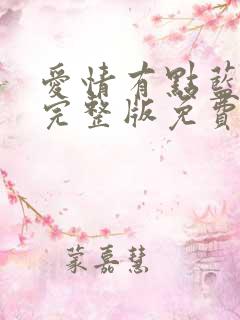 愛情有點藍
完整版免費
蒙嘉慧